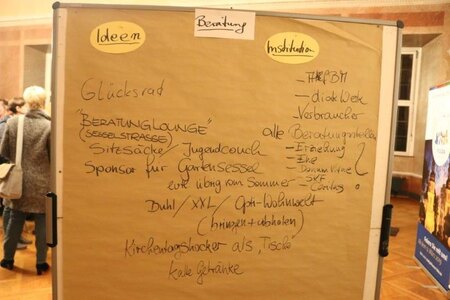 Beratung
Ideen
Institution
Glücksrad
"BERATUNGLOUNGE"
(SESSELSTRASSE)
Sitzsäcke / Jugendcouch
Sponsor für Gartensessel
evtl. übrig vom Sommer
Buhl / XXL / Opti-Wohnwelt
(bringen + abholen)
Kirchentagshocker als „Tische"
Kalte Getränke
– diak Werk
– Verbraucher
alle Beratungsstellen
– Erziehung
– Ehe
– Donum Vitae
– SKF
– Caritas